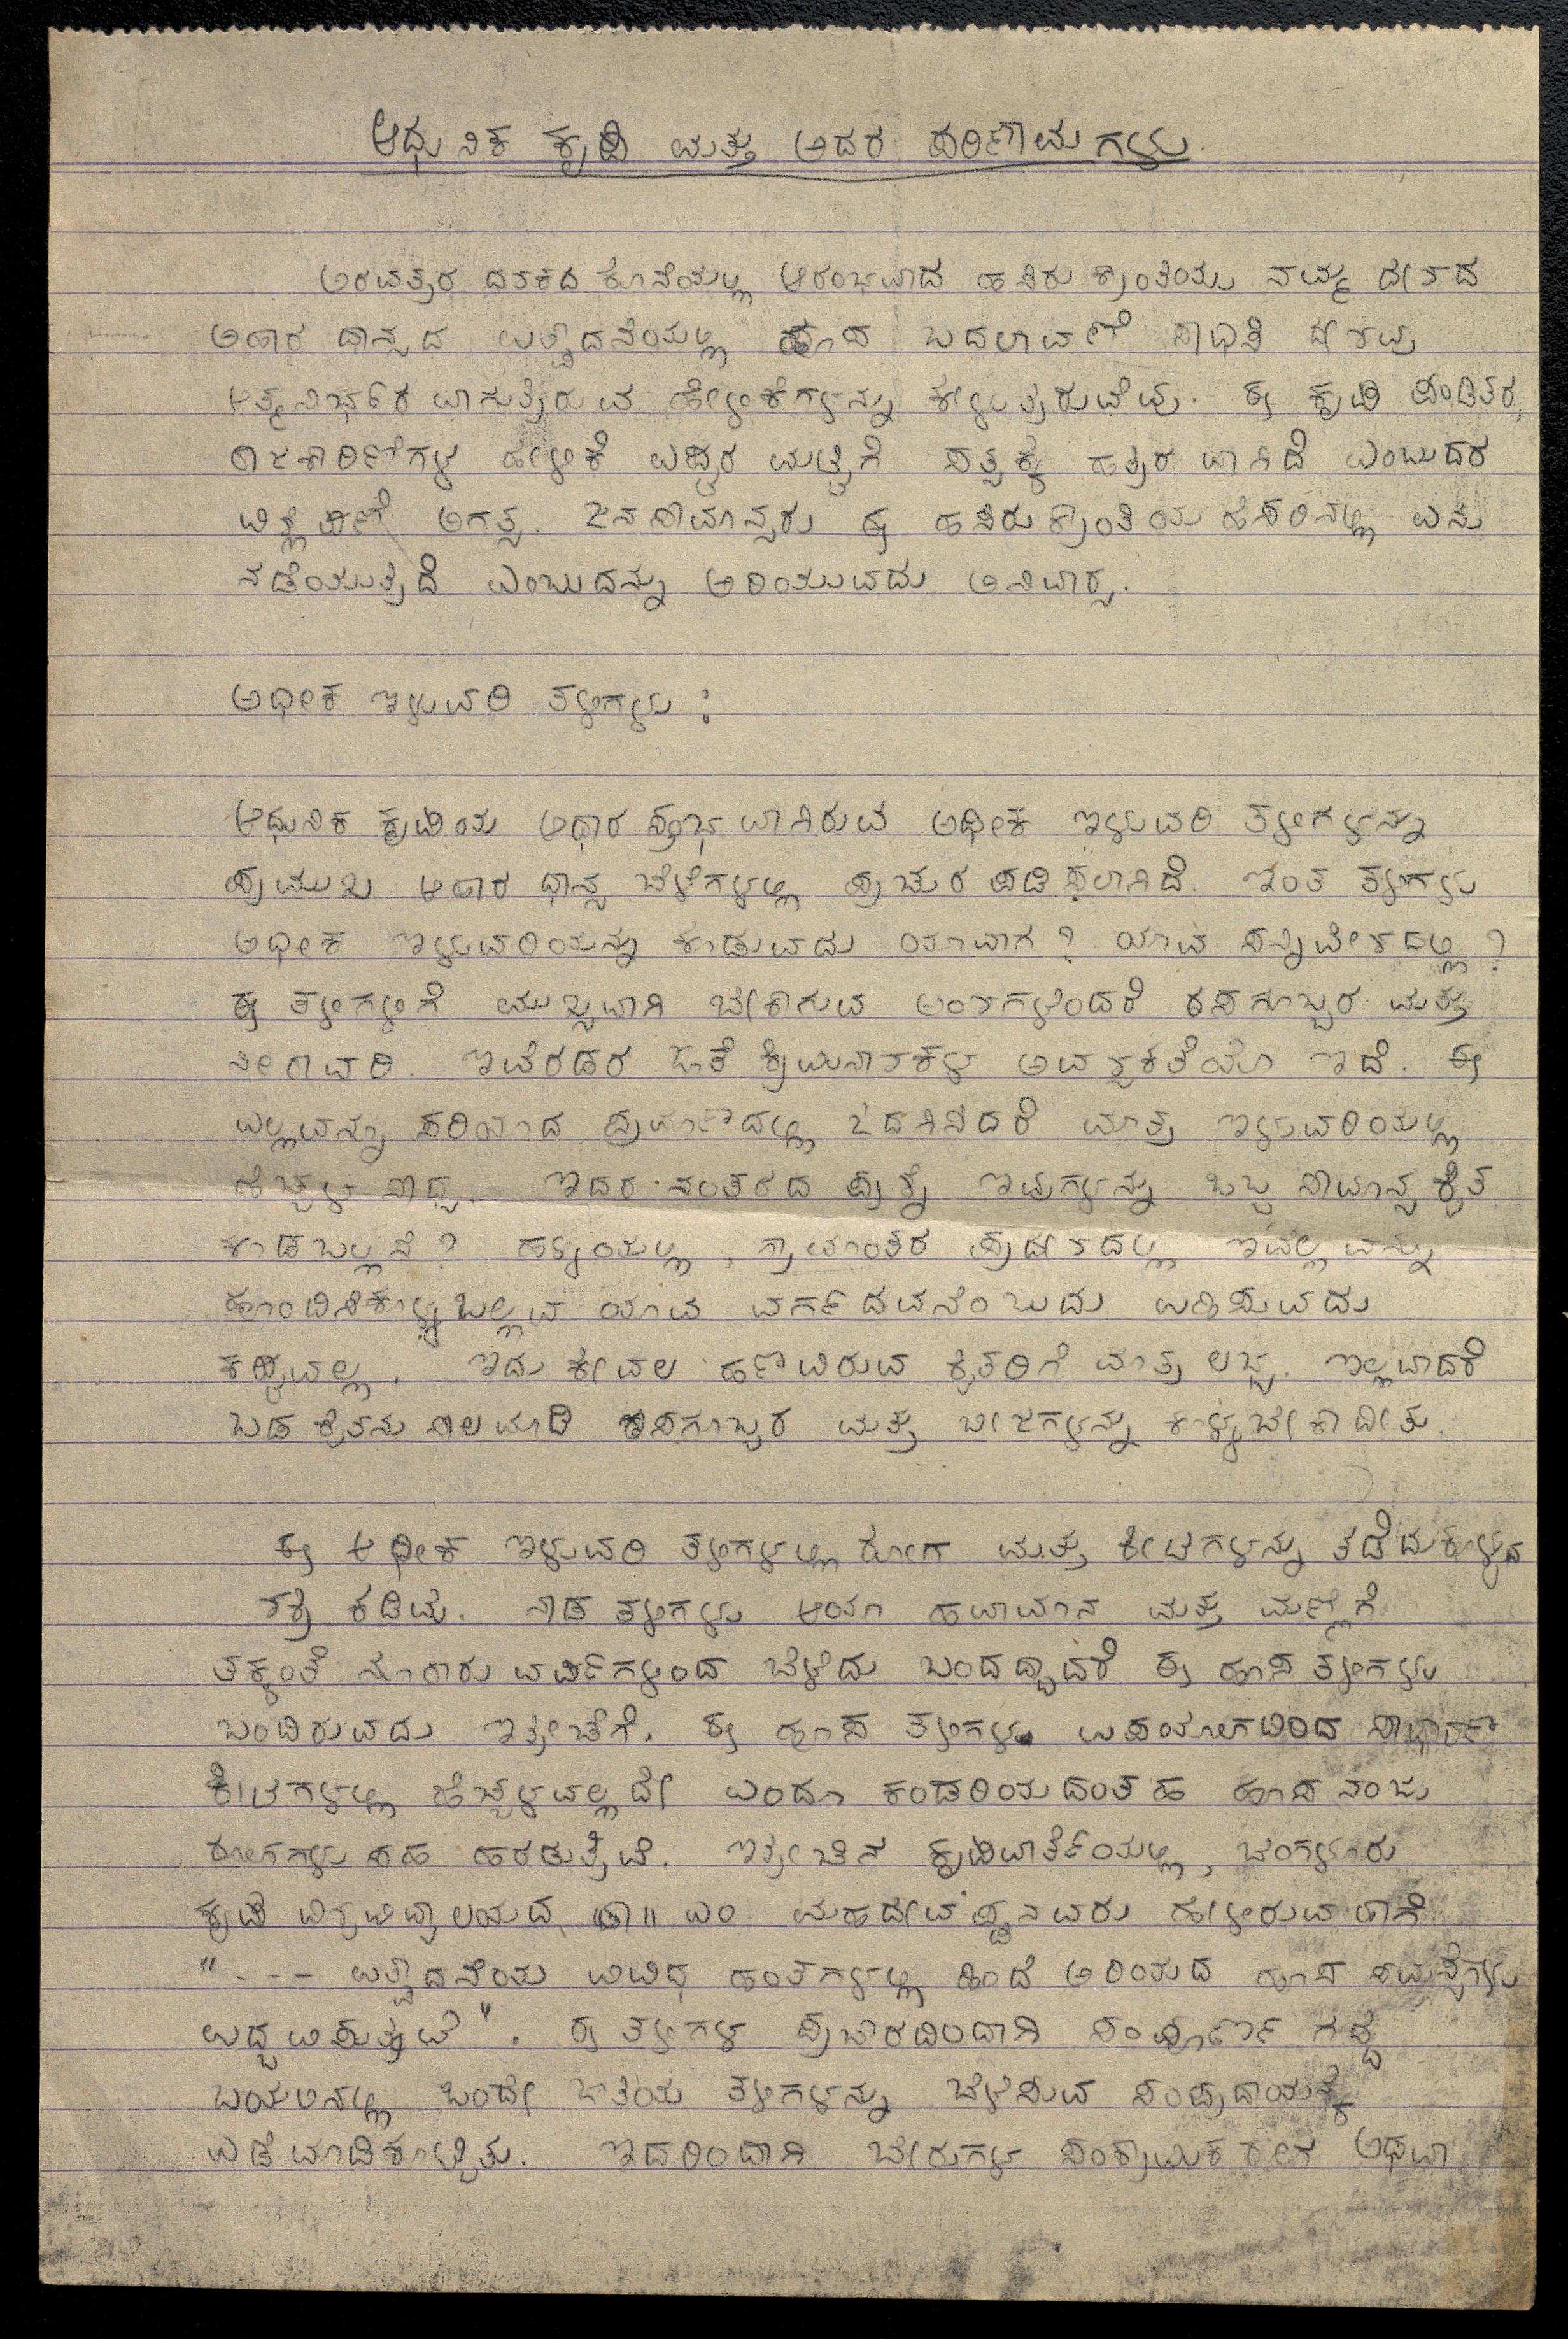 ಆಧುನಿಕ ಕೃಷಿ ಮತ್ತು ಅದರ ಪರಿಣಾಮಗಳು
ಅರವತ್ತರ ದಶಕದ ಕೊನೆಯಲ್ಲಿ ಆರಂಭವಾದ ಹಸಿರು ಕ್ರಾಂತಿಯು ನಮ್ಮ ದೇಶದ
ಆಹಾರ ಧಾನ್ಯದ ಉತ್ಪಾದನೆಯಲ್ಲಿ ಹೊಸ ಬದಲಾವಣೆ ಸಾಧಿಸಿ ದೇಶವು
ಆತ್ಮನಿರ್ಭರ ವಾಗುತ್ತಿರುವ ಹೇಳಿಕೆಗಳನ್ನು ಕೇಳುತ್ತಿರುವೆವು. ಈ ಕೃಷಿ ಪಂಡಿತರ,
ರಾಜಕಾರಿಣಿಗಳ ಹೇಳಿಕೆ ಎಷ್ಟರ ಮಟ್ಟಿಗೆ ಸತ್ಯಕ್ಕೆ ಹತ್ತಿರ ವಾಗಿದೆ ಎಂಬುದರ
ವಿಶ್ಲೇಷಣೆ ಅಗತ್ಯ. ಜನಸಾಮಾನ್ಯರು ಈ ಹಸಿರು ಕ್ರಾಂತಿಯ ಹೆಸರಿನಲ್ಲಿ ಏನು
ನಡೆಯುತ್ತಿದೆ ಎಂಬುದನ್ನು ಅರಿಯುವದು ಅನಿವಾರ್ಯ.
ಅಧೀಕ ಇಳುವರಿ ತಳಿಗಳು :
ಆಧುನಿಕ ಕೃಷಿಯ ಆಧಾರ ಸ್ತಂಭ ವಾಗಿರುವ ಅಧೀಕ ಇಳುವರಿ ತಳಿಗಳನ್ನು
ಪ್ರಮುಖ ಆಹಾರ ಧಾನ್ಯ ಬೆಳೆಗಳಲ್ಲಿ ಪ್ರಚುರ ಪಡಿಸಲಾಗಿದೆ. ಇಂತ ತಳಿಗಳು
ಅಧೀಕ ಇಳುವರಿಯನ್ನು ಕೊಡುವದು ಯಾವಾಗ? ಯಾವ ಸನ್ನಿವೇಶದಲ್ಲಿ?
ಈ ತಳಿಗಳಿಗೆ ಮುಖ್ಯವಾಗಿ ಬೇಕಾಗುವ ಅಂಶಗಳೆಂದರೆ ರಸಗೊಬ್ಬರ ಮತ್ತು
ನೀರಾವರಿ. ಇವೆರಡರ ಜೊತೆ ಕ್ರಿಮಿನಾಶಕಗಳ ಅವಶ್ಯಕತೆಯೂ ಇದೆ. ಈ
ಎಲ್ಲವನ್ನು ಸರಿಯಾದ ಪ್ರಮಾಣದಲ್ಲಿ ಒದಗಿಸಿದರೆ ಮಾತ್ರ ಇಳುವರಿಯಲ್ಲಿ
ಹೆಚ್ಚಳ ಸಾಧ್ಯ. ಇದರ ನಂತರದ ಪ್ರಶ್ನೆ ಇವುಗಳನ್ನು ಒಬ್ಬ ಸಾಮಾನ್ಯ ರೈತ
ಕೊಡಬಲ್ಲನೆ? ಹಳ್ಳಿಯಲ್ಲಿ, ಗ್ರಾಮಾಂತರ ಪ್ರದೇಶದಲ್ಲಿ ಇವೆಲ್ಲವನ್ನು
ಹೊಂದಿಸಿಕೊಳ್ಳಬಲ್ಲವ ಯಾವ ವರ್ಗದವನೆಂಬುದು ಊಹಿಸುವದು
ಕಷ್ಟವಲ್ಲ. ಇದು ಕೇವಲ ಹಣವಿರುವ ರೈತರಿಗೆ ಮಾತ್ರ ಲಭ್ಯ. ಇಲ್ಲವಾದರೆ
ಬಡ ರೈತನು ಸಾಲ ಮಾಡಿ ರಸಗೊಬ್ಬರ ಮತ್ತು ಬೀಜಗಳನ್ನು ಕೊಳ್ಳಬೇಕಾದೀತು.
ಈ ಅಧೀಕ ಇಳುವರಿ ತಳಿಗಳಲ್ಲಿ ರೋಗ ಮತ್ತು ಕೀಟಗಳನ್ನು ತಡೆದುಕೊಳ್ಳುವ
ಶಕ್ತಿ ಕಡಿಮೆ. ನಾಡ ತಳಿಗಳು ಆಯಾ ಹವಾಮಾನ ಮತ್ತು ಮಣ್ಣಿಗೆ
ತಕ್ಕಂತೆ ನೂರಾರು ವರ್ಷಗಳಿಂದ ಬೆಳೆದು ಬಂದದ್ದಾದರೆ ಈ ಹೊಸ ತಳಿಗಳು
ಬಂದಿರುವದು ಇತ್ತೀಚೆಗೆ. ಈ ಹೊಸ ತಳಿಗಳ ಉಪಯೋಗದಿಂದ ಸಾಧಾರಣ
ಕೀಟಗಳಲ್ಲಿ ಹೆಚ್ಚಳವಲ್ಲದೇ ಎಂದೂ ಕಂಡರಿಯದಂತಹ ಹೊಸ ನಂಜು
ರೋಗಗಳು ಸಹ ಹರಡುತ್ತಿವೆ. ಇತ್ತೀಚಿನ ಕೃಷಿವಾರ್ತೆಯಲ್ಲಿ, ಬೆಂಗಳೂರು
ಕೃಷಿ ವಿಶ್ವವಿದ್ಯಾಲಯದ ಡಾ॥ ಎಂ ಮಹದೇವಪ್ಪನವರು ಹೇಳಿರುವ ಹಾಗೆ
"--- ಉತ್ಪಾದನೆಯ ವಿವಿಧ ಹಂತಗಳಲ್ಲಿ ಹಿಂದೆ ಅರಿಯದ ಹೊಸ ಸಮಸ್ಯೆಗಳು
ಉದ್ಭವಿಸುತ್ತವೆ". ಈ ತಳಿಗಳ ಪ್ರಚಾರದಿಂದಾಗಿ ಸಂಪೂರ್ಣ ಗದ್ದೆ
ಬಯಲಿನಲ್ಲಿ ಒಂದೇ ಜಾತಿಯ ತಳಿಗಳನ್ನು ಬೆಳೆಸುವ ಸಂಪ್ರದಾಯಕ್ಕೆ
ಎಡೆ ಮಾಡಿಕೊಟ್ಟಿತು. ಇದರಿಂದಾಗಿ ಬೇರುಗಳ ಸಂಕ್ರಾಮಿಕ ರೋಗ ಅಥವಾ